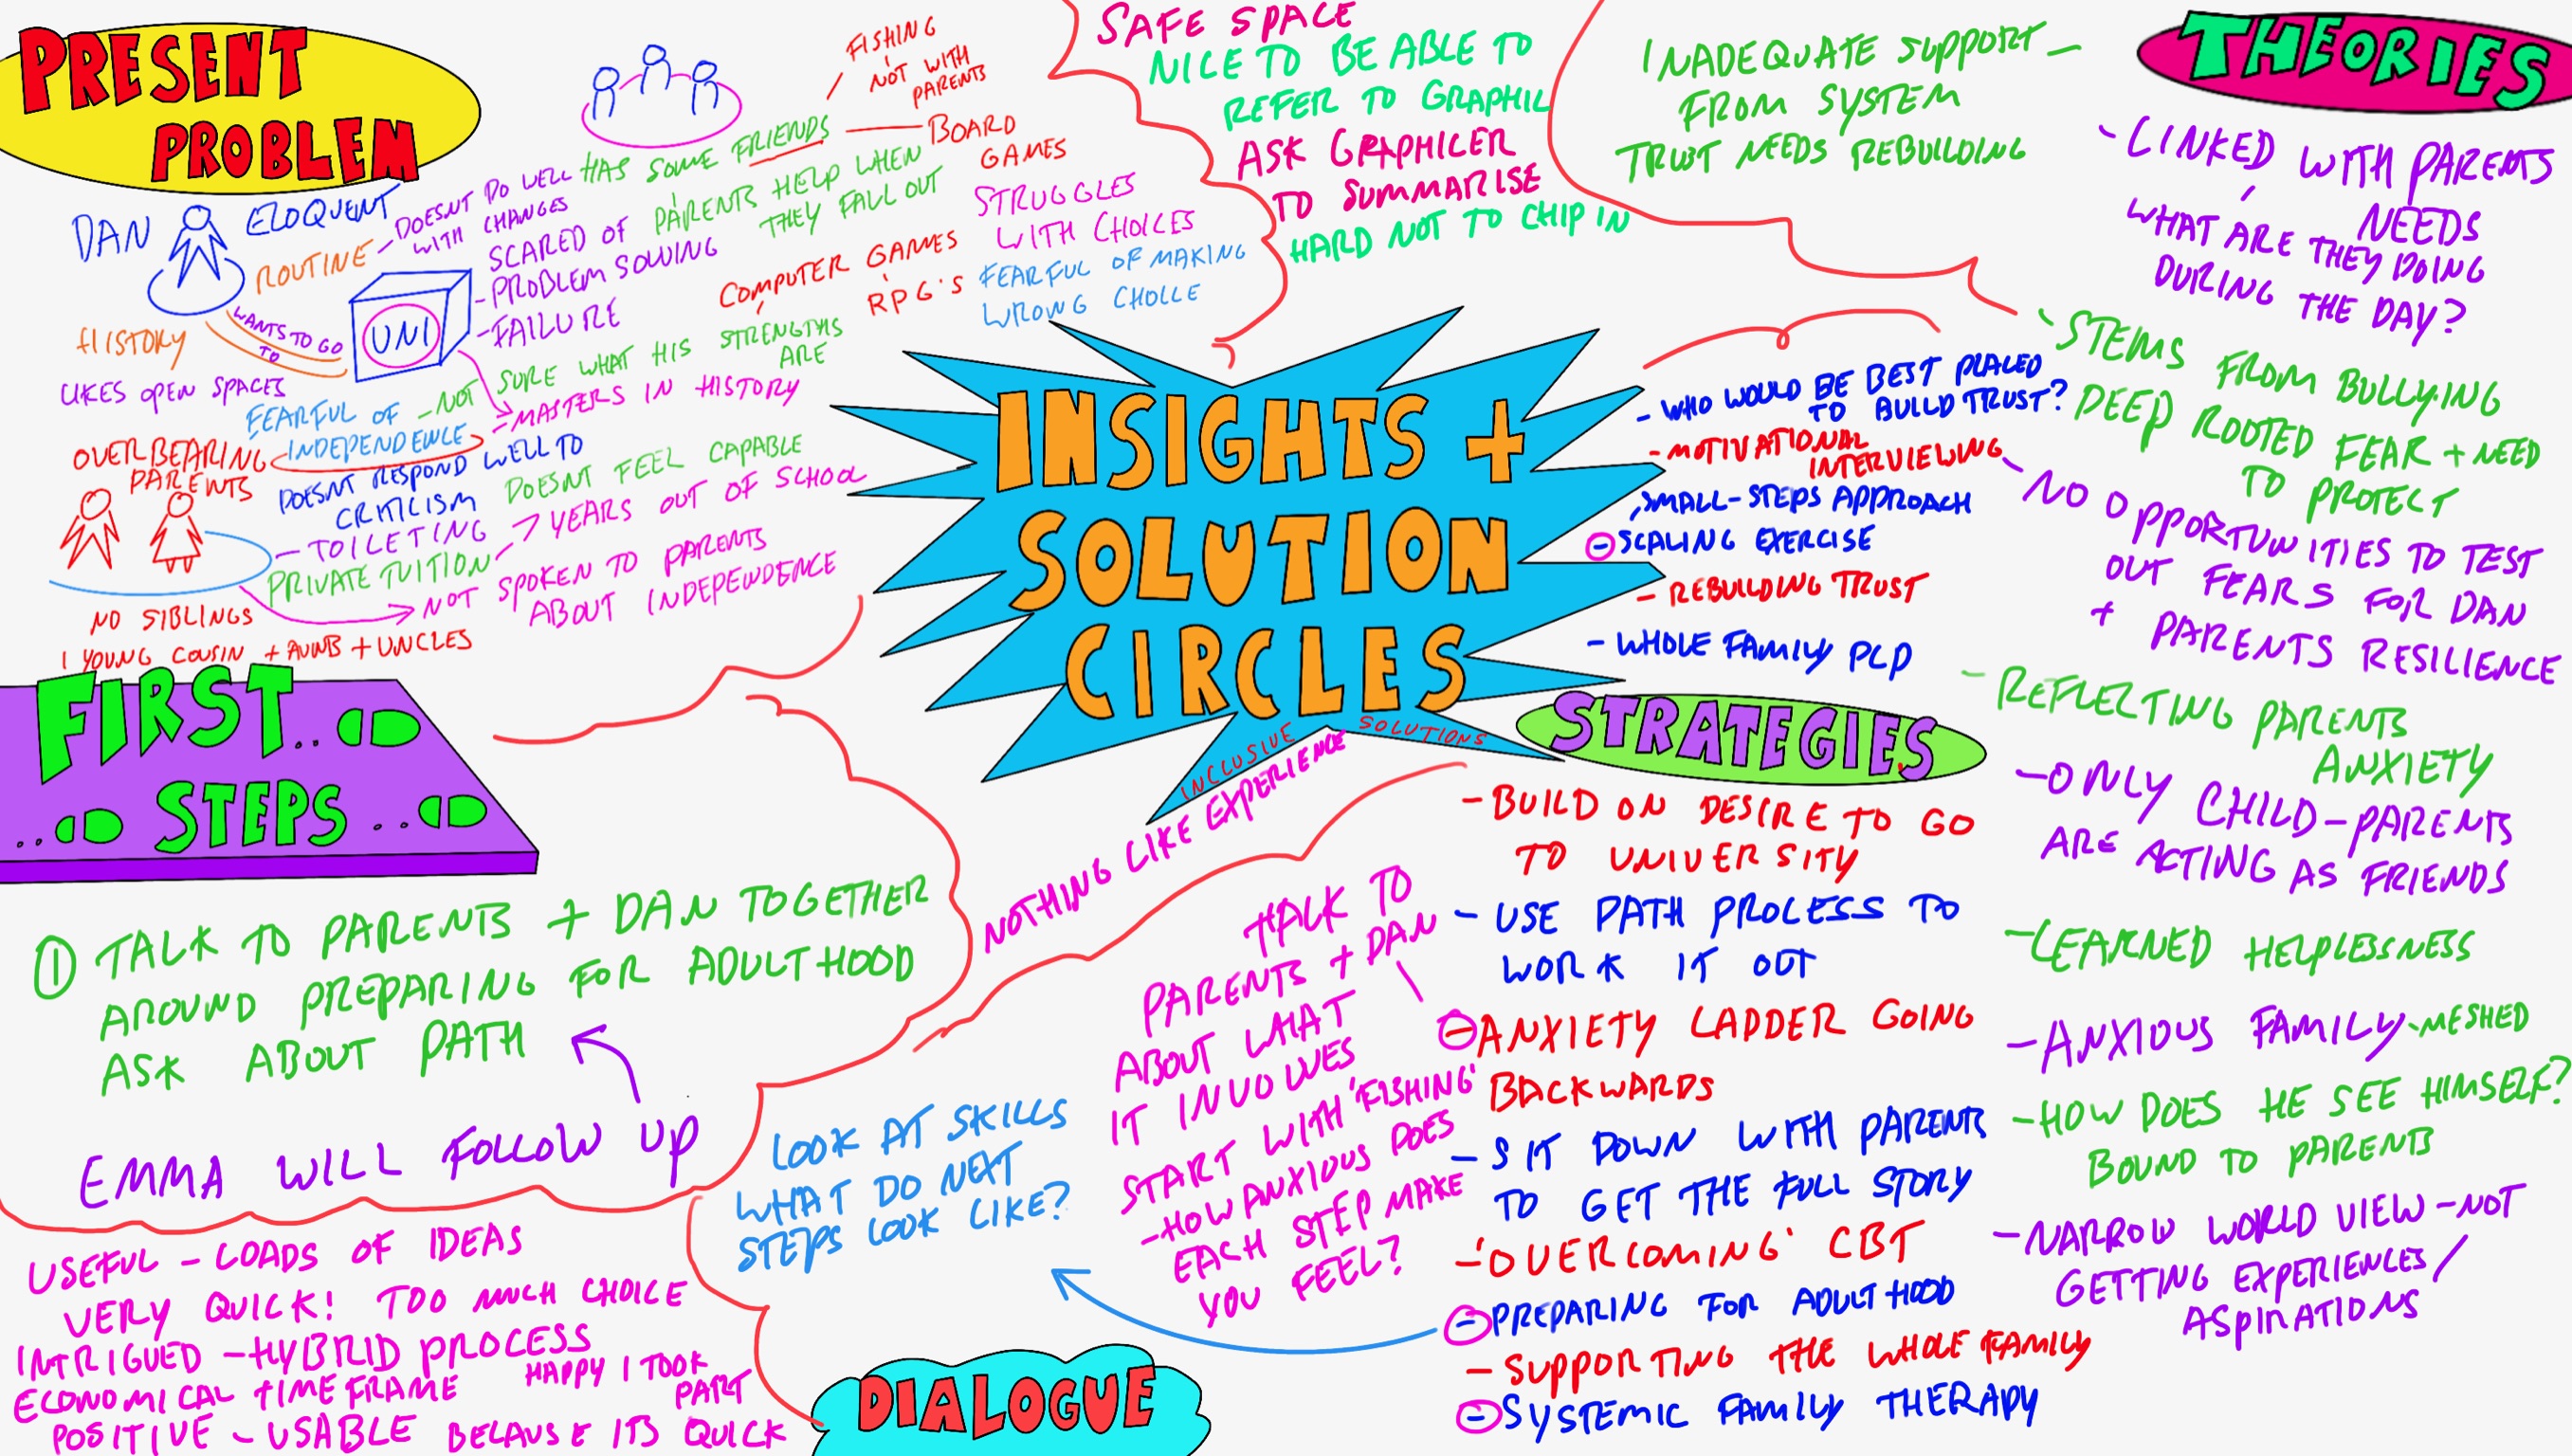 PRESENT
PROBLEM
DAN
ELOQUENT
ROUTINE
- DOESNT DO WELL
WITH CHANGES
HISTORY
LIKES OPEN SPACES
WANTS TO GO
TO
UNI
SCARED OF
- PROBLEM SOLVING
- FAILURE
HAS SOME FRIENDS
FISHING
NOT WITH
PARENTS
BOARD
GAMES
PARENTS HELP WHEN
THEY FALL OUT
COMPUTER GAMES
RPG'S
STRUGGLES
WITH CHOICES
FEARFUL OF MAKING
WRONG CHOICE
FEARFUL OF
INDEPENDENCE
- NOT SURE WHAT HIS STRENGTHS
ARE
= MASTERS IN HISTORY
OVERBEARING
PARENTS
DOESNT RESPOND WELL TO
CRITICISM
DOESNT FEEL CAPABLE
- TOILETING
PRIVATE TUITION
- 7 YEARS OUT OF SCHOOL
NOT SPOKEN TO PARENTS
ABOUT INDEPENDENCE
NO SIBLINGS
1 YOUNG COUSIN + AUNTS + UNCLES
SAFE SPACE
NICE TO BE ABLE TO
REFER TO GRAPHIC
ASK GRAPHICER
TO SUMMARISE
HARD NOT TO CHIP IN
INSIGHTS +
SOLUTION
CIRCLES
INCLUSIVE SOLUTIONS
THEORIES
INADEQUATE SUPPORT -
FROM SYSTEM
TRUST NEEDS REBUILDING
- LINKED WITH PARENTS
NEEDS
WHAT ARE THEY DOING
DURING THE DAY?
- STEMS FROM BULLYING
DEEP ROOTED FEAR + NEED
TO PROTECT
- NO OPPORTUNITIES TO TEST
OUT FEARS FOR DAN
+ PARENTS RESILIENCE
- REFLECTING PARENTS
ANXIETY
- ONLY CHILD - PARENTS
ARE ACTING AS FRIENDS
- LEARNED HELPLESSNESS
- ANXIOUS FAMILY - MESHED
- HOW DOES HE SEE HIMSELF?
BOUND TO PARENTS
- NARROW WORLD VIEW - NOT
GETTING EXPERIENCES /
ASPIRATIONS
- WHO WOULD BE BEST PLACED
TO BUILD TRUST?
- MOTIVATIONAL
INTERVIEWING
SMALL-STEPS APPROACH
- SCALING EXERCISE
- REBUILDING TRUST
- WHOLE FAMILY PCP
STRATEGIES
- BUILD ON DESIRE TO GO
TO UNIVERSITY
- USE PATH PROCESS TO
WORK IT OUT
- ANXIETY LADDER GOING
BACKWARDS
- SIT DOWN WITH PARENTS
TO GET THE FULL STORY
- 'OVERCOMING' CBT
- PREPARING FOR ADULTHOOD
- SUPPORTING THE WHOLE FAMILY
- SYSTEMIC FAMILY THERAPY
TALK TO
PARENTS + DAN
ABOUT WHAT
IT INVOLVES
START WITH 'FISHING'
- HOW ANXIOUS DOES
EACH STEP MAKE
YOU FEEL?
LOOK AT SKILLS
WHAT DO NEXT
STEPS LOOK LIKE?
FIRST
STEPS
1 TALK TO PARENTS + DAN TOGETHER
AROUND PREPARING FOR ADULTHOOD
ASK ABOUT PATH
EMMA WILL FOLLOW UP
DIALOGUE
NOTHING LIKE EXPERIENCE
USEFUL - LOADS OF IDEAS
VERY QUICK! TOO MUCH CHOICE
INTRIGUED - HYBRID PROCESS
ECONOMICAL TIMEFRAME
HAPPY I TOOK
PART
POSITIVE - USABLE BECAUSE ITS QUICK